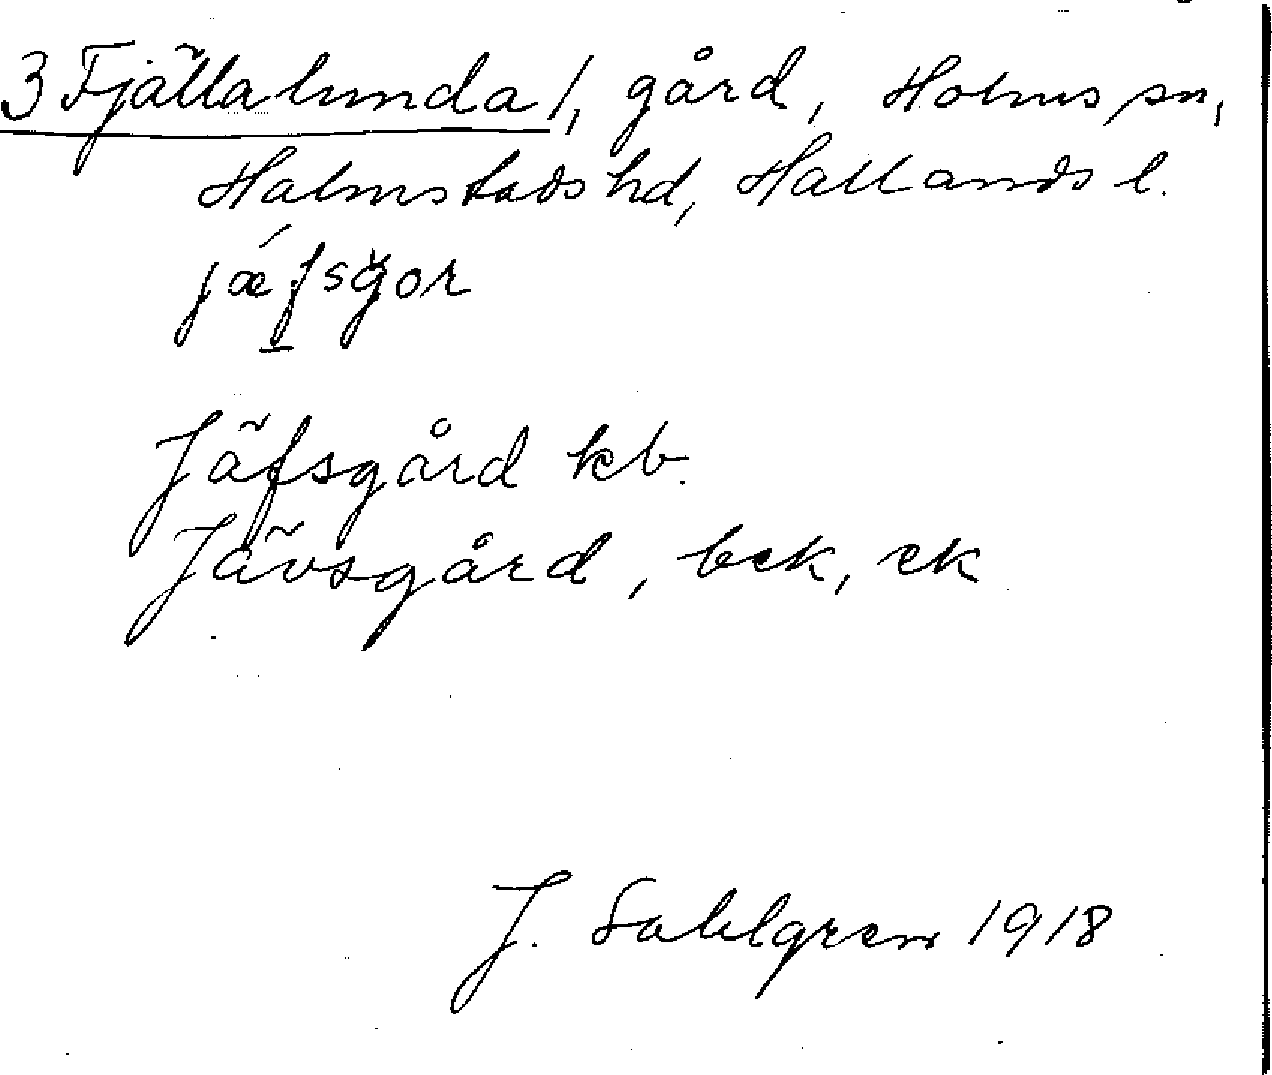 3 Fjällalunda 1, gård, Holms sn,
Halmstads hd, Hallands l.
jǽfsgor
Jäfsgård kb.
Jävsgård, bek, ek
J. Sahlgren 1918